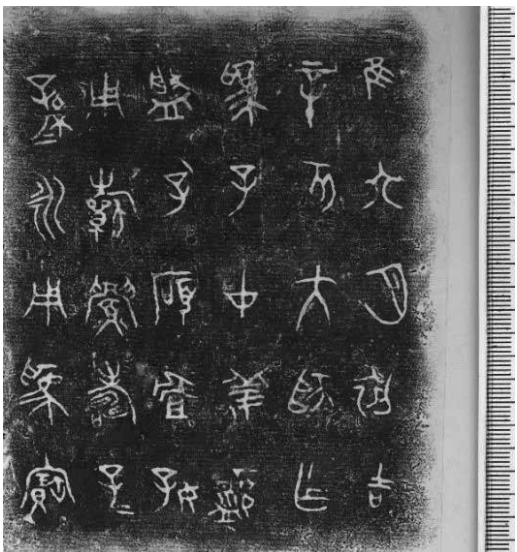 隹六月初吉
辛亥大師乍
為子中姜沬
盤孔碩且好
用祈眉壽子
孫永用為寶